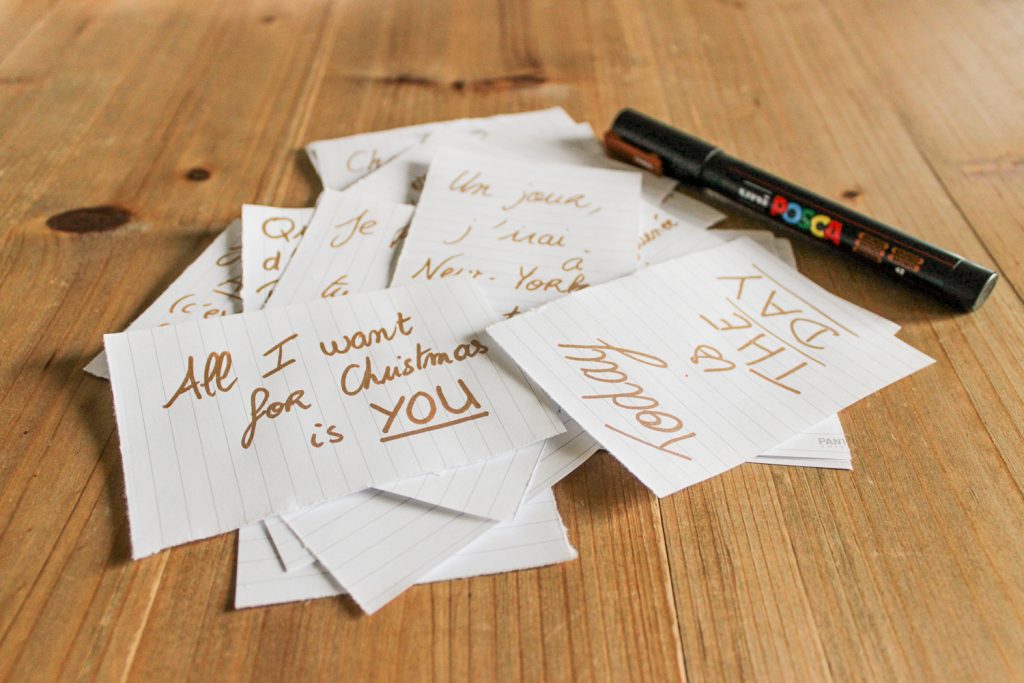 Un jour,
j'irai
à
New-York
Je
tu
Qu
d
All I want
for Christmas
is YOU
Today
is
THE
DAY
uni POSCA
PANT